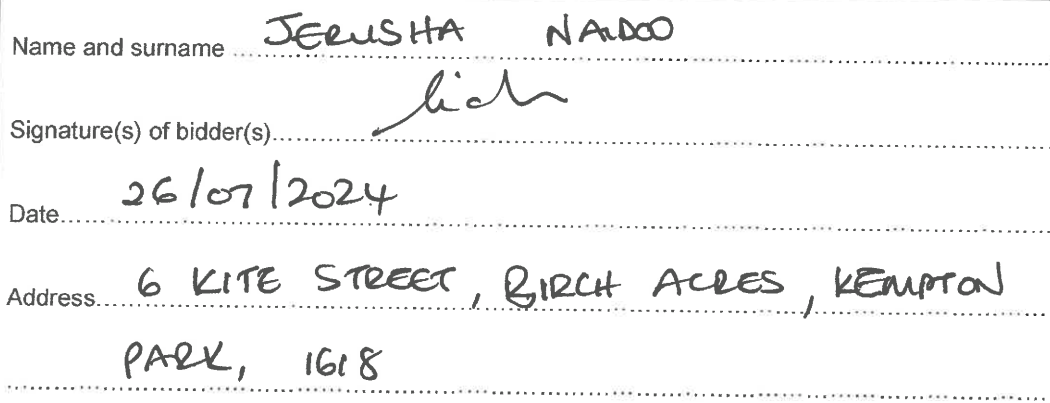 Name and surname JERUSHA NAIDOO
Signature(s) of bidder(s)
Date 26/07/2024
Address 6 KITE STREET, BIRCH ACRES, KEMPTON
PARK, 1618